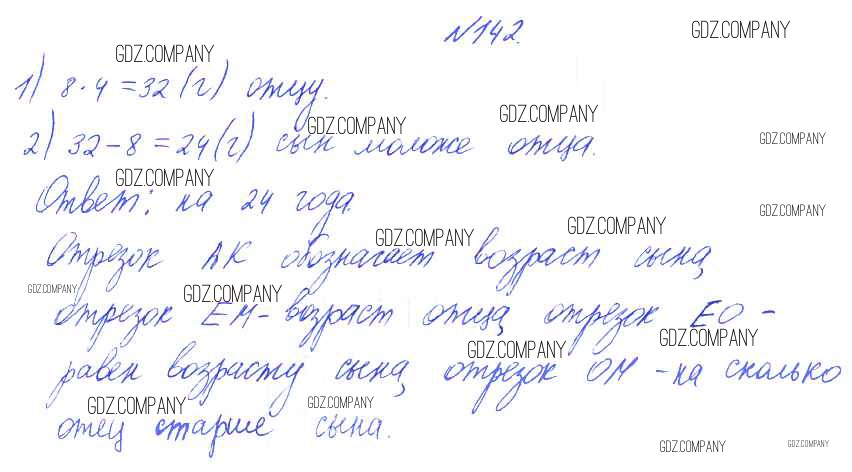 №142.
GDZ.COMPANY
GDZ.COMPANY
1) 8·4=32(г) отцу.
GDZ.COMPANY
GDZ.COMPANY
2) 32-8=24(г) сын моложе отца.
GDZ.COMPANY
GDZ.COMPANY
Ответ: на 24 года.
GDZ.COMPANY
GDZ.COMPANY
GDZ.COMPANY
Отрезок АК обозначает возраст сына,
GDZ.COMPANY
GDZ.COMPANY
отрезок ЕМ- возраст отца, отрезок ЕО -
GDZ.COMPANY
GDZ.COMPANY
равен возрасту сына, отрезок ОМ - на сколько
GDZ.COMPANY
GDZ.COMPANY
отец старше сына.
GDZ.COMPANY
GDZ.COMPANY